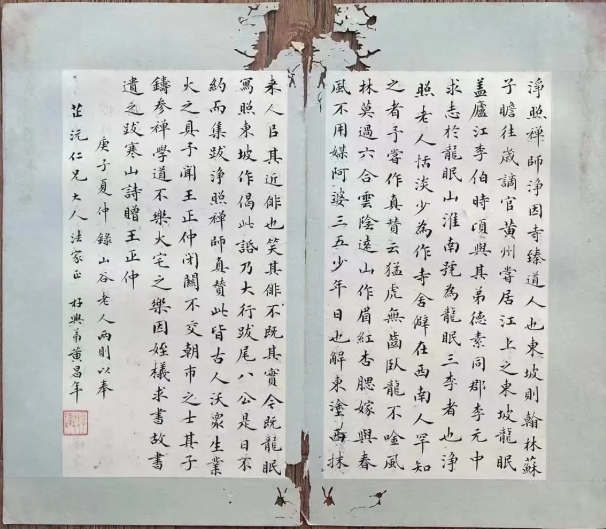 淨照禪師淨因寺臻道人也東坡則翰林蘇
子瞻往歲謫官黃州嘗居江上之東坡龍眠
蓋廬江李伯時頃與其弟德素同郡李元中
求志於龍眠山淮南號為龍眠三李者也淨
照老人恬淡少為作寺舍僻在西南人罕知
之者予嘗作真贊云猛虎無齒臥龍不唫風
林莫過六合雲陰遠山作眉紅杏腮嫁與春
風不用媒阿婆三五少年日也解東塗西抹
來人臣其近俳也笑其俳不既其實令既龍眠
寫照東坡作偈此語乃大行跋尾八公是日不
約而集跋淨照禪師真贊此皆古人沃眾生業
火之具予聞王正仲閉關不交朝市之士其子
鑄參禪學道不樂火宅之樂因姪樣求書故書
遺之跋寒山詩贈王正仲
庚子夏仲錄山谷老人兩則以奉
芷沅仁兄大人法家正 好興弟黃昌年